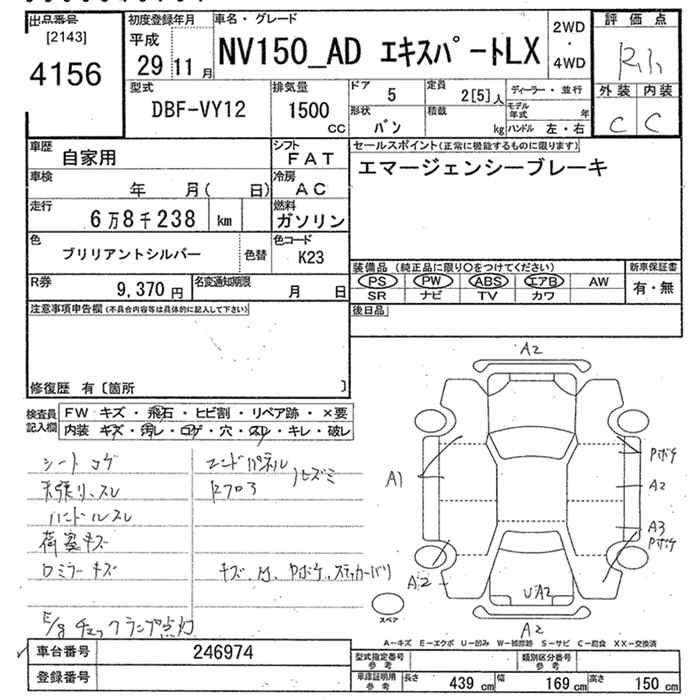 出品番号
[2143]
4156
初度登録年月
平成
29 11 月
車名・グレード
NV150_AD エキスパートLX
2WD
・
4WD
評価点
外装 内装
C C
型式
DBF-VY12
排気量
1500
CC
ドア 5
定員 2[5]人
ディーラー・並行
形状 バン
積載 kg
モデル年式 年
ハンドル 左・右
車歴 自家用
シフト FAT
車検 年 月( 日)
冷房 AC
走行 6万8千238 km
燃料 ガソリン
色 ブリリアントシルバー
色替
色コード K23
R券 9,370 円
名変通知期限 月 日
セールスポイント(正常に機能するものに限ります)
エマージェンシーブレーキ
装備品 (純正品に限り〇をつけてください)
新車保証書
PS PW ABS エアB AW
SR ナビ TV カワ
有・無
注意事項申告欄(不具合内容等は具体的に記入して下さい)
後日品
修復歴 有〔箇所 〕
検査員記入欄
FW キズ・飛石・ヒビ割・リペア跡・×要
内装 キズ・汚れ・コゲ・穴・スレ・キレ・破レ
シートコゲ
エンドパネル
天張り、スレ
ハンドルスレ
荷室キズ
ロミラーキズ
E/gチェックランプ点灯
A2
A1
Pボケ
A2
A3
Pボケ
A2
UA2
A2
スペア
A-キズ E-エクボ U-凹み W-補修跡 S-サビ C-腐食 XX-交換済
車台番号 246974
登録番号
型式指定番号 参考
類別区分番号 参考
車庫証明用 参考
長さ 439 cm 幅 169 cm 高さ 150 cm